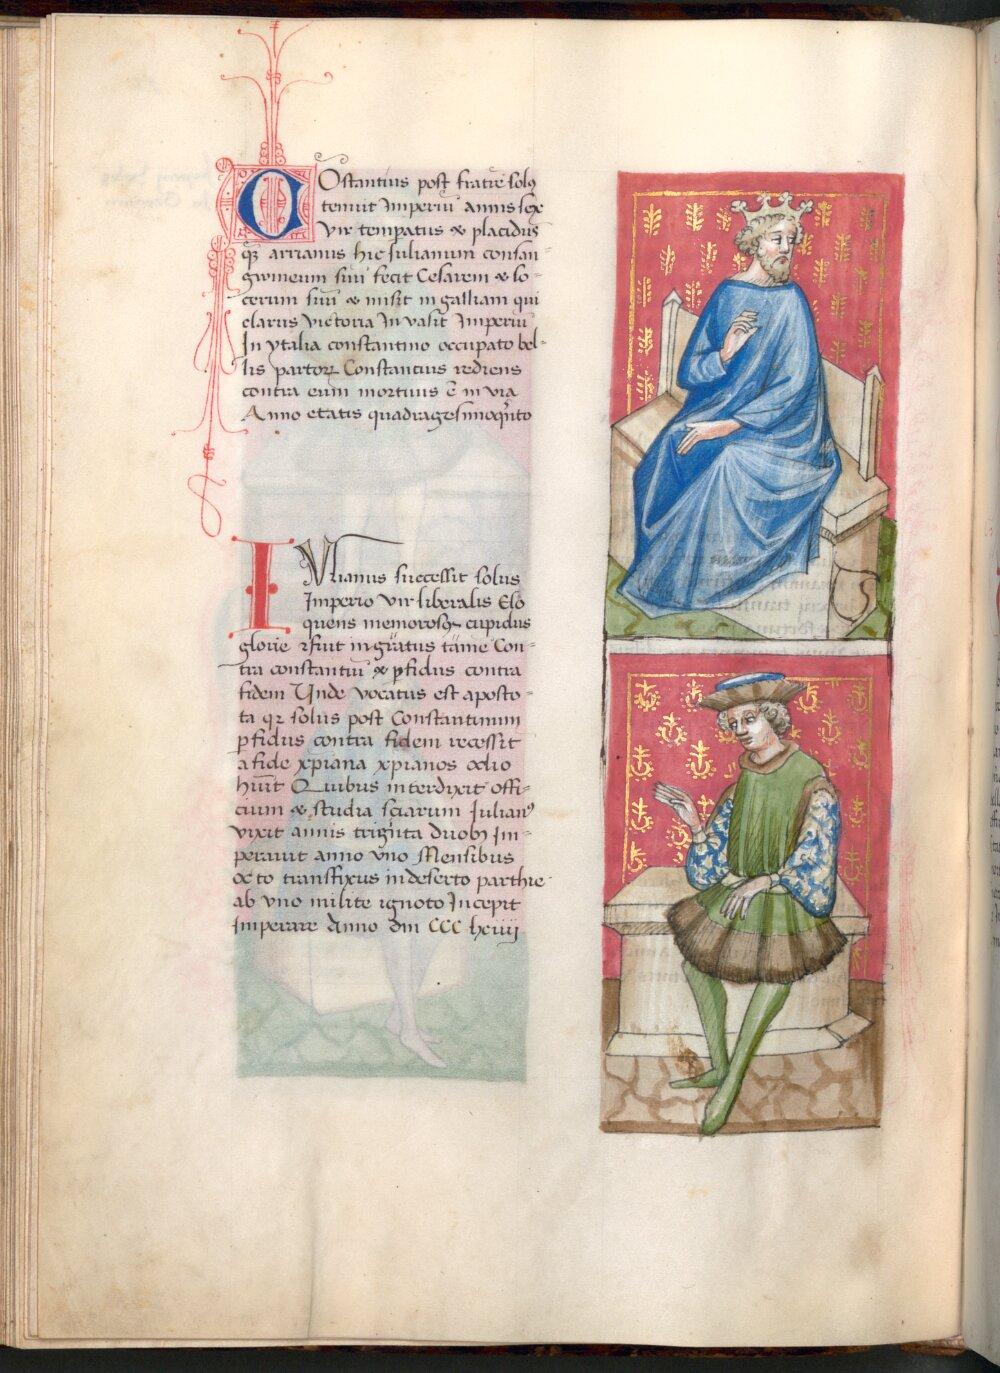 COstantius post fratrē solꝰ
tenuit Imperiū annis sex
vir temꝑatus ⁊ placidus
qꝛ arrianus hic Iulianum consan
gwineum suū fecit Cesarem ⁊ so
cerum suū ⁊ misit in galliam qui
clarus victoria Invasit Imperiū
In ytalia constantino occupato bel
lis partoꝝ Constancius rediens
contra eum mortuus ē in via
Anno etatis quadragesimoqīto
IVlianus successit solus
Imperio vir liberalis Elo
quens memorosqꝫ cupidus
glorie ⁊ fuit ingratus tamē Con
tra constantiū ⁊ ꝑfidus contra
fidem Unde vocatus est aposto
ta qꝛ solus post Constantinum
ꝑfidus contra fidem recessit
a fide xpiana xpianos odio
huīt Quibus interdixit offi
cium ⁊ studia sciarum Iulianꝰ
vixit annis triginta duobꝫ Im
peravit anno vno Mensibus
octo transfixus in deserto parthie
ab vno milite ignoto Incepit
Imperare Anno dm̄ CCC lxiiij